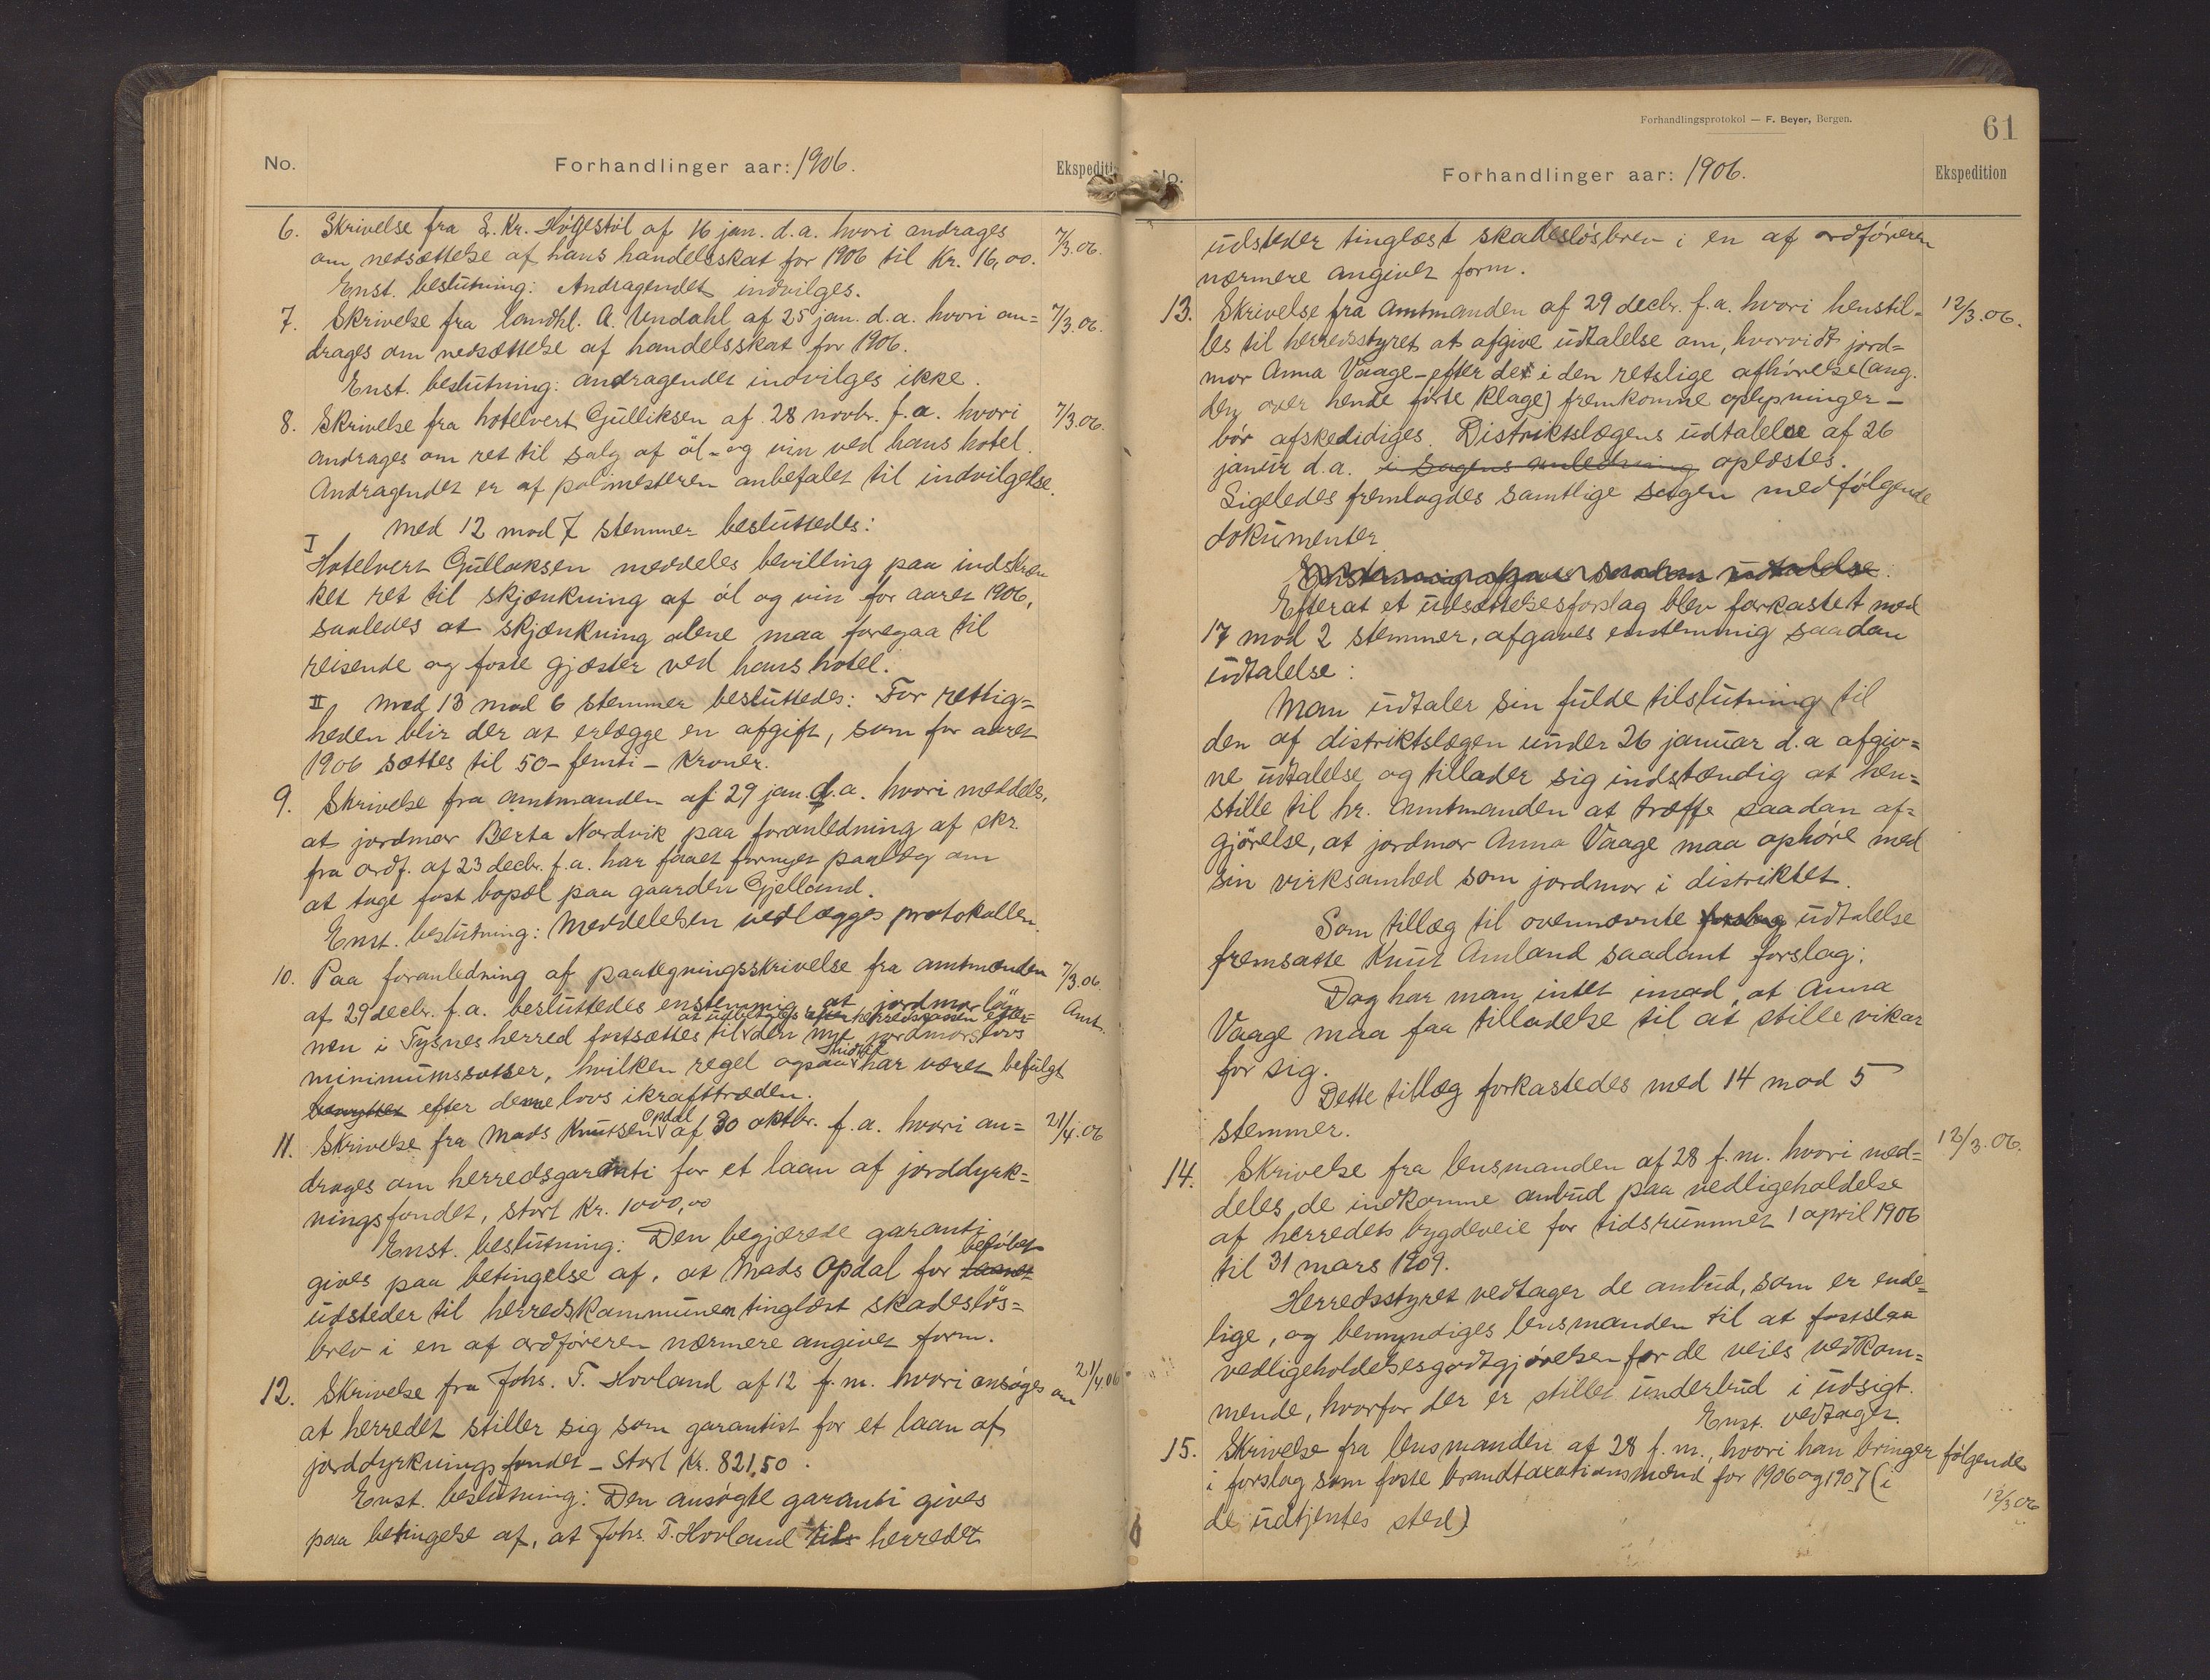 No.
Forhandlinger aar: 1906.
Ekspediti
6. Skrivelse fra L. Kr. Høgestøl af 16 jan. d. a. hvori andrages 7/3.06.
om nedsættelse af hans handelsskat for 1906 til Kr. 16,00.
Enst. beslutning: Andragendet indvilges.
7. Skrivelse fra landhl. A. Undahl af 25 jan. d. a. hvori an= 7/3.06.
drages om nedsættelse af handelsskat for 1906.
Enst. beslutning: andragendet indvilges ikke.
8. Skrivelse fra hotelvert Gulliksen af 28 novbr. f. a. hvori 7/3.06.
andrages om ret til salg af øl- og vin ved hans hotel.
Andragendet er af politimesteren anbefalet til indvilgelse.
Med 12 mod 7 stemmer besluttedes:
I
Hotelvert Gullaksen meddeles bevilling paa indskræn
ket ret til skjænkning af øl og vin for aaret 1906,
saaledes at skjænkning alene maa foregaa til
reisende og faste gjæster ved hans hotel.
II Med 13 mod 6 stemmer besluttedes: For rettig=
heden blir der at erlægge en afgift, som for aaret
1906 sættes til 50 - femti - Kroner.
9. Skrivelse fra amtmanden af 29 jan. d. a. hvori meddeles,
at jordmor Berta Nordvik paa foranledning af skr.
fra ordf. af 23 decbr. f. a. har faaet fornyet paalæg om
at tage fast bopæl paa gaarden Gjelland.
Enst. beslutning: Meddelelsen vedlægges protokollen.
10. Paa foranledning af paategningsskrivelse fra amtmanden 7/3.06.
af 29 decbr. f. a. besluttedes enstemmig, at jordmorløn= Amt.
at udbetales efter herredskassen efter
nen i Tysnes herred fortsættes til den nye jordmorslovs
hidtil
minimumssatser, hvilken regel ogsaa har været befulgt
benyttet efter denne lovs ikrafttræden.
Opdal
11. Skrivelse fra Mads Knutsen af 30 oktbr. f. a. hvori an= 21/4.06
drages om herredsgaranti for et laan af jorddyrk=
ningsfondet, stort Kr. 1000,00
Enst. beslutning: Den begjærede garanti
beløbet
gives paa betingelse af, at Mads Opdal for laanet
udsteder til herredskommunen tinglæst skadesløs=
brev i en af ordføreren nærmere angivet form.
12. Skrivelse fra Johs. T. Hovland af 12 f. m. hvori ansøges om 21/4.06
at herredet stiller sig som garantist for et laan af
jorddyrkningsfondet - stort Kr. 821,50.
Enst. beslutning: Den ansøgte garanti gives
paa betingelse af, at Johs. T. Hovland til herredet
Forhandlingsprotokol — F. Beyer, Bergen.
61
No.
Forhandlinger aar: 1906.
Ekspedition
udsteder tinglæst skadesløsbrev i en af ordføreren
nærmere angivet form.
13. Skrivelse fra Amtmanden af 29 decbr. f. a. hvori henstil- 12/3.06.
les til herredsstyret at afgive udtalelse om, hvorvidt jord=
mor Anna Vaage - efter de i den retslige afhørelse (ang.
den over hende førte klage) fremkomne oplysninger -
bør afskedidiges. Distriktslægens udtalelse af 26
januar d. a. i sagens anledning oplæstes.
Ligeledes fremlagdes samtlige sagen medfølgende
dokumenter
Enstemmig afgaves saadan udtalelse:
Efterat et udsættelsesforslag blev forkastet med
17 mod 2 stemmer, afgaves enstemmig saadan
udtalelse:
Man udtaler sin fulde tilslutning til
den af distriktslægen under 26 januar d. a afgiv=
ne udtalelse og tillader sig indstændig at hen=
stille til hr. Amtmanden at træffe saadan af=
gjørelse, at jordmor Anna Vaage maa ophøre med
sin virksamhed som jordmor i distriktet.
Som tillæg til ovennævnte forslag udtalelse
fremsatte Knut Amland saadant forslag:
Dog har man intet imod, at Anna
Vaage maa faa tilladelse til at stille vikar
for sig.
Dette tillæg forkastedes med 14 mod 5
stemmer.
14. Skrivelse fra lensmanden af 28 f. m. hvori med= 12/3.06.
deles de indkomne anbud paa vedligeholdelse
af herredets bygdeveie for tidsrummet 1 april 1906
til 31 mars 1909.
Herredsstyret vedtager de anbud, som er ende=
lige, og bemyndiges lensmanden til at fastslaa
vedligeholdelsesgodtgjørelsen for de veies vedkom=
mende, hvorfor der er stillet underbud i udsigt.
Enst. vedtaget.
15. Skrivelse fra lensmanden af 28 f. m., hvori han bringer følgende
i forslag som faste brandtaxationsmænd for 1906 og 1907 (i
de udtjentes sted) 12/3 06